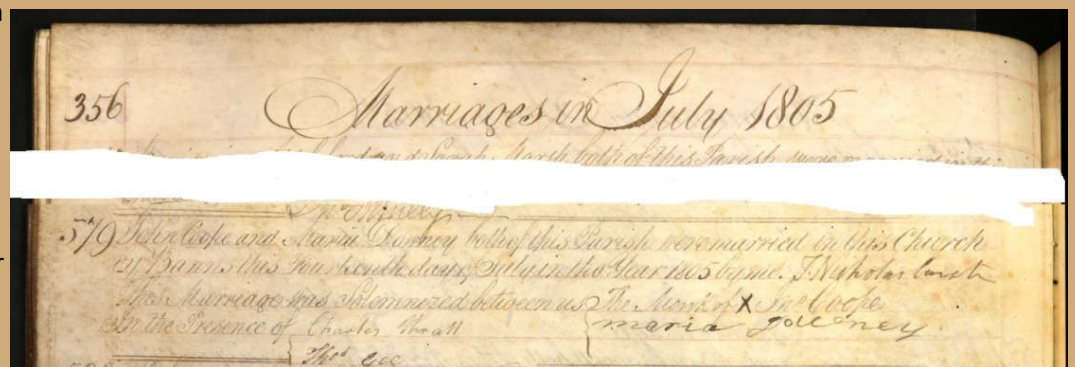 356 Marriages in July 1805
and Sarah Marsh both of this Parish were married in
579 John Cooke and Maria Downey both of this Parish were married in this Church
by Banns this Fourteenth day of July in the Year 1805 by me. J Nicholas
This Marriage was Solemnized between us The Mark of X Jno Cooke
In the Presence of Charles Thrall maria
Thos Gee